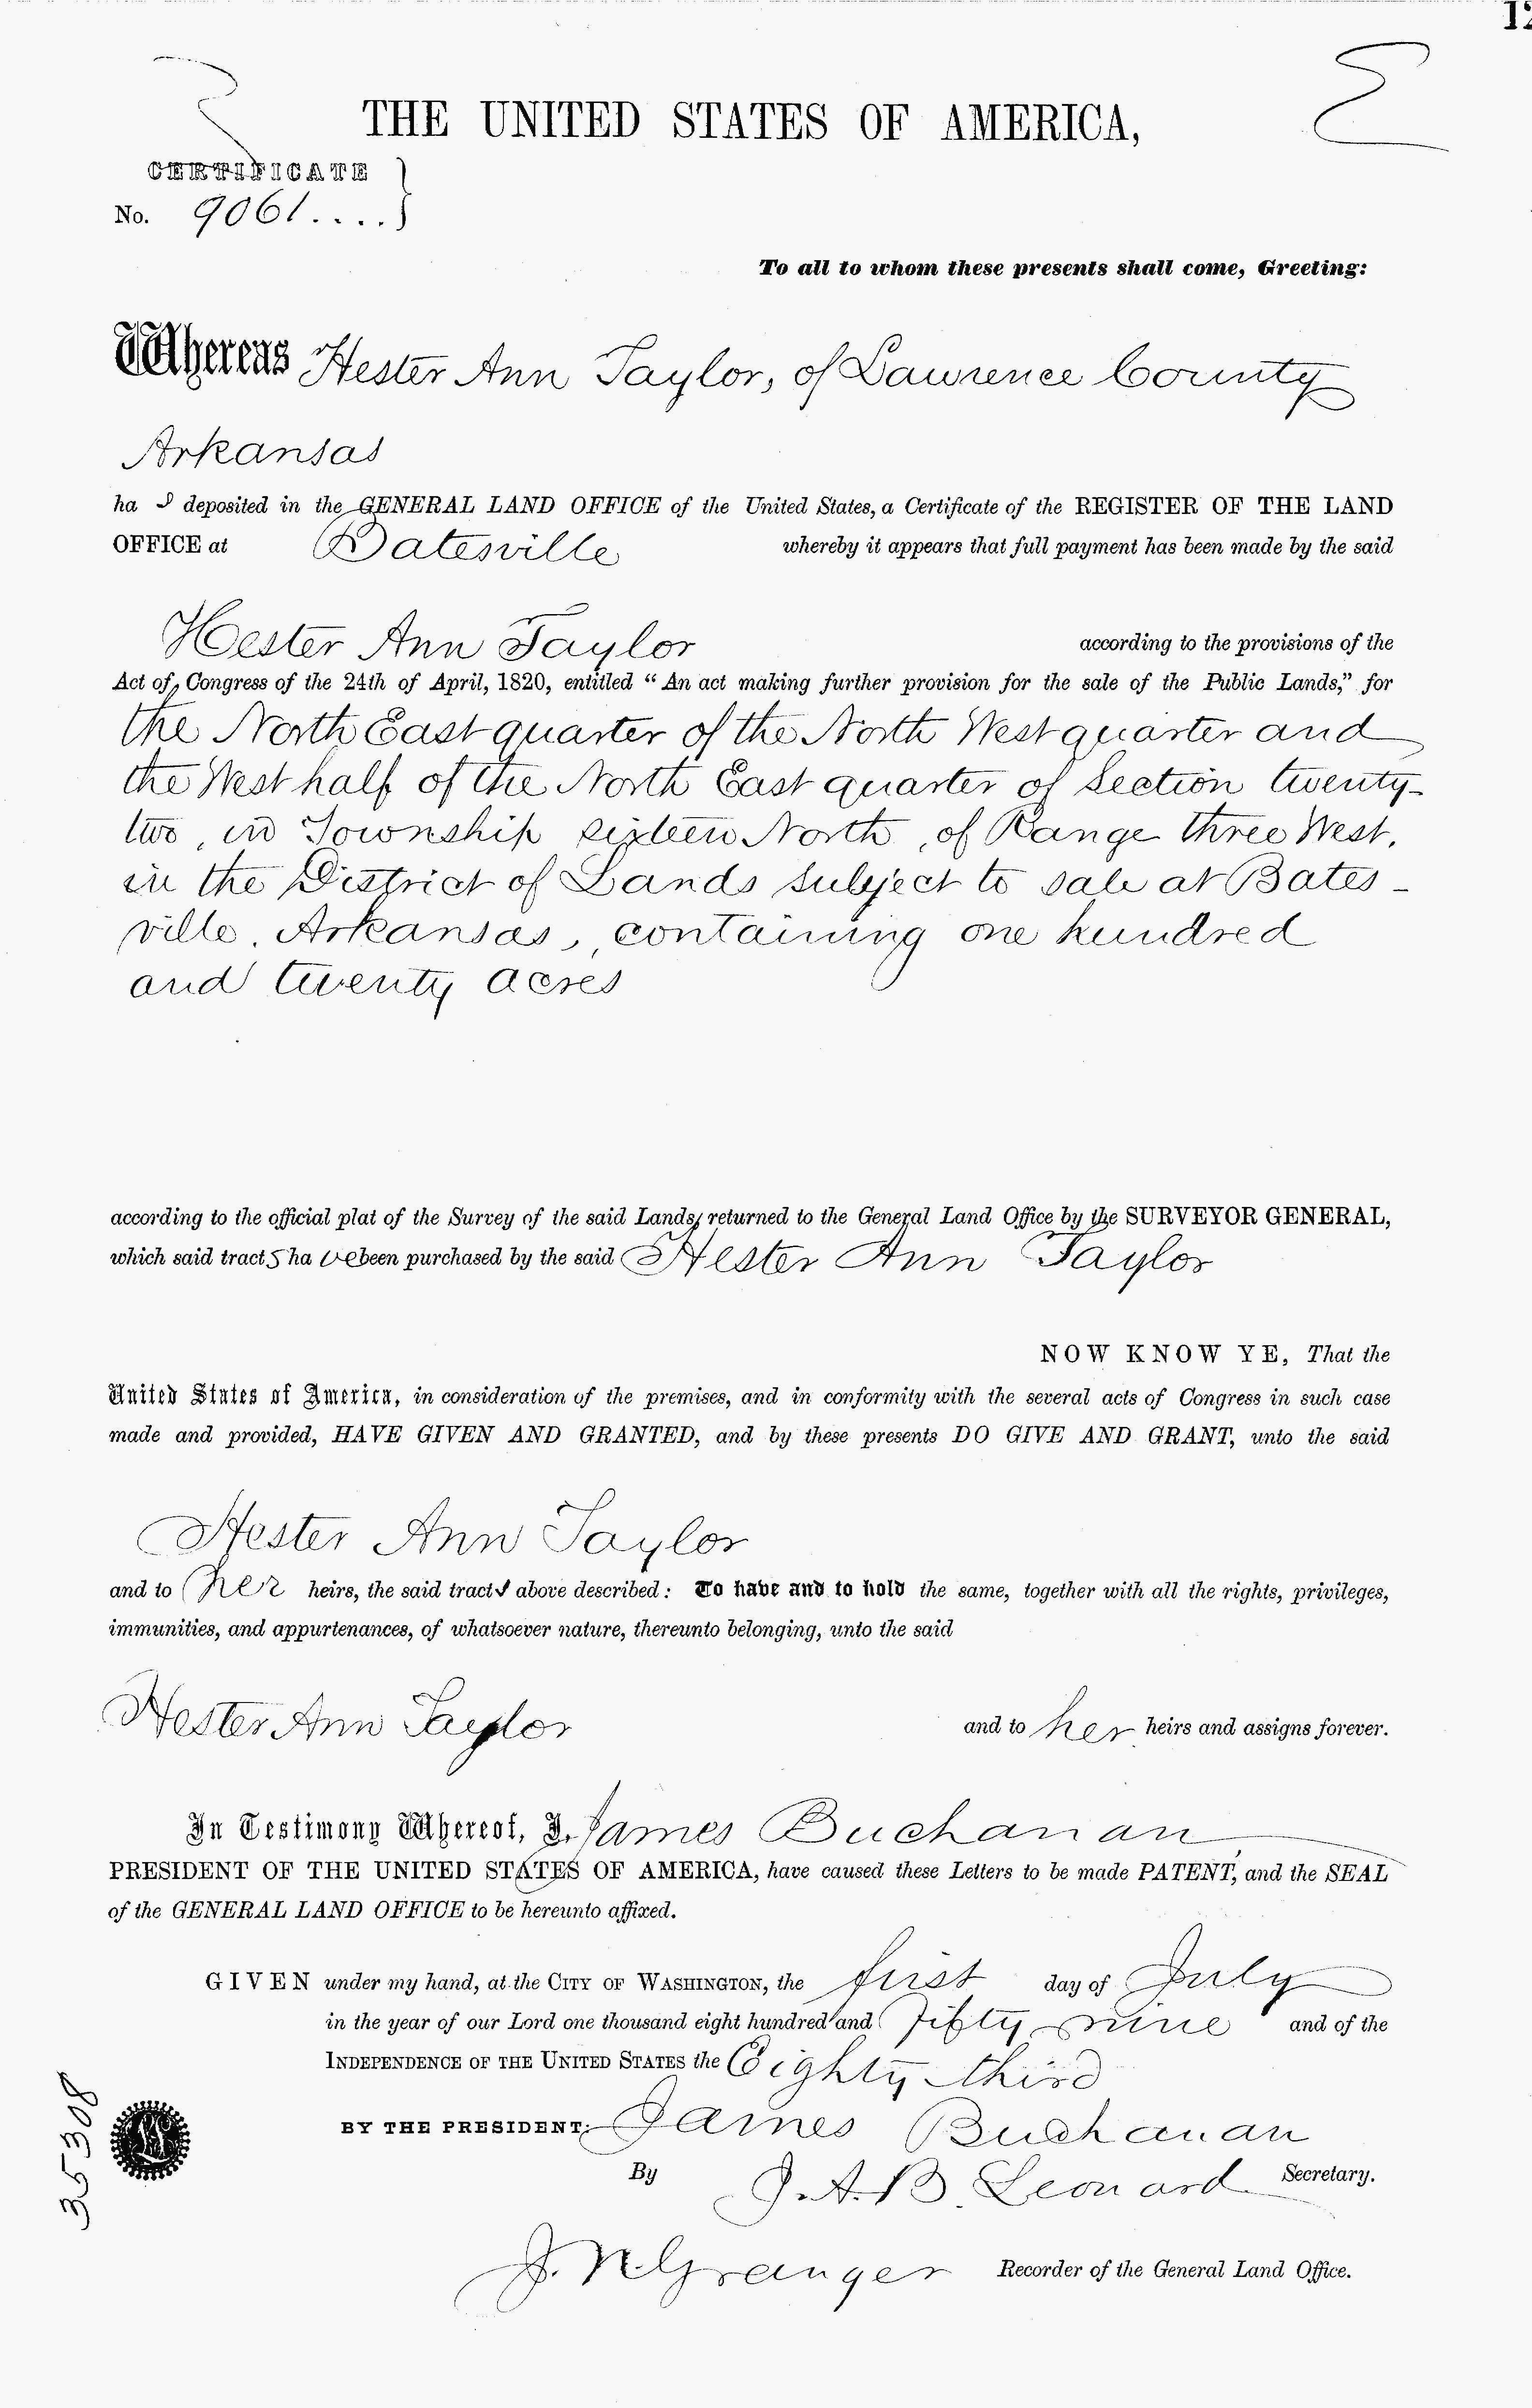 12
THE UNITED STATES OF AMERICA,
CERTIFICATE
No. 9061....
To all to whom these presents shall come, Greeting:
Whereas Hester Ann Taylor, of Lawrence County
Arkansas
ha s deposited in the GENERAL LAND OFFICE of the United States, a Certificate of the REGISTER OF THE LAND
OFFICE at Batesville whereby it appears that full payment has been made by the said
Hester Ann Taylor according to the provisions of the
Act of Congress of the 24th of April, 1820, entitled “An act making further provision for the sale of the Public Lands,” for
the North East quarter of the North West quarter and
the West half of the North East quarter of Section twenty-
two, in Township sixteen North, of Range three West,
in the District of Lands subject to sale at Bates-
ville, Arkansas, containing one hundred
and twenty acres
according to the official plat of the Survey of the said Lands, returned to the General Land Office by the SURVEYOR GENERAL,
which said tract s ha ve been purchased by the said Hester Ann Taylor
NOW KNOW YE, That the
United States of America, in consideration of the premises, and in conformity with the several acts of Congress in such case
made and provided, HAVE GIVEN AND GRANTED, and by these presents DO GIVE AND GRANT, unto the said
Hester Ann Taylor
and to her heirs, the said tract s above described: To have and to hold the same, together with all the rights, privileges,
immunities, and appurtenances, of whatsoever nature, thereunto belonging, unto the said
Hester Ann Taylor and to her heirs and assigns forever.
In Testimony Whereof, I, James Buchanan
PRESIDENT OF THE UNITED STATES OF AMERICA, have caused these Letters to be made PATENT, and the SEAL
of the GENERAL LAND OFFICE to be hereunto affixed.
GIVEN under my hand, at the CITY OF WASHINGTON, the first day of July
in the year of our Lord one thousand eight hundred and fifty nine and of the
INDEPENDENCE OF THE UNITED STATES the Eighty third
BY THE PRESIDENT: James Buchanan
By J. A. B. Leonard Secretary.
J. N. Granger Recorder of the General Land Office.
35308